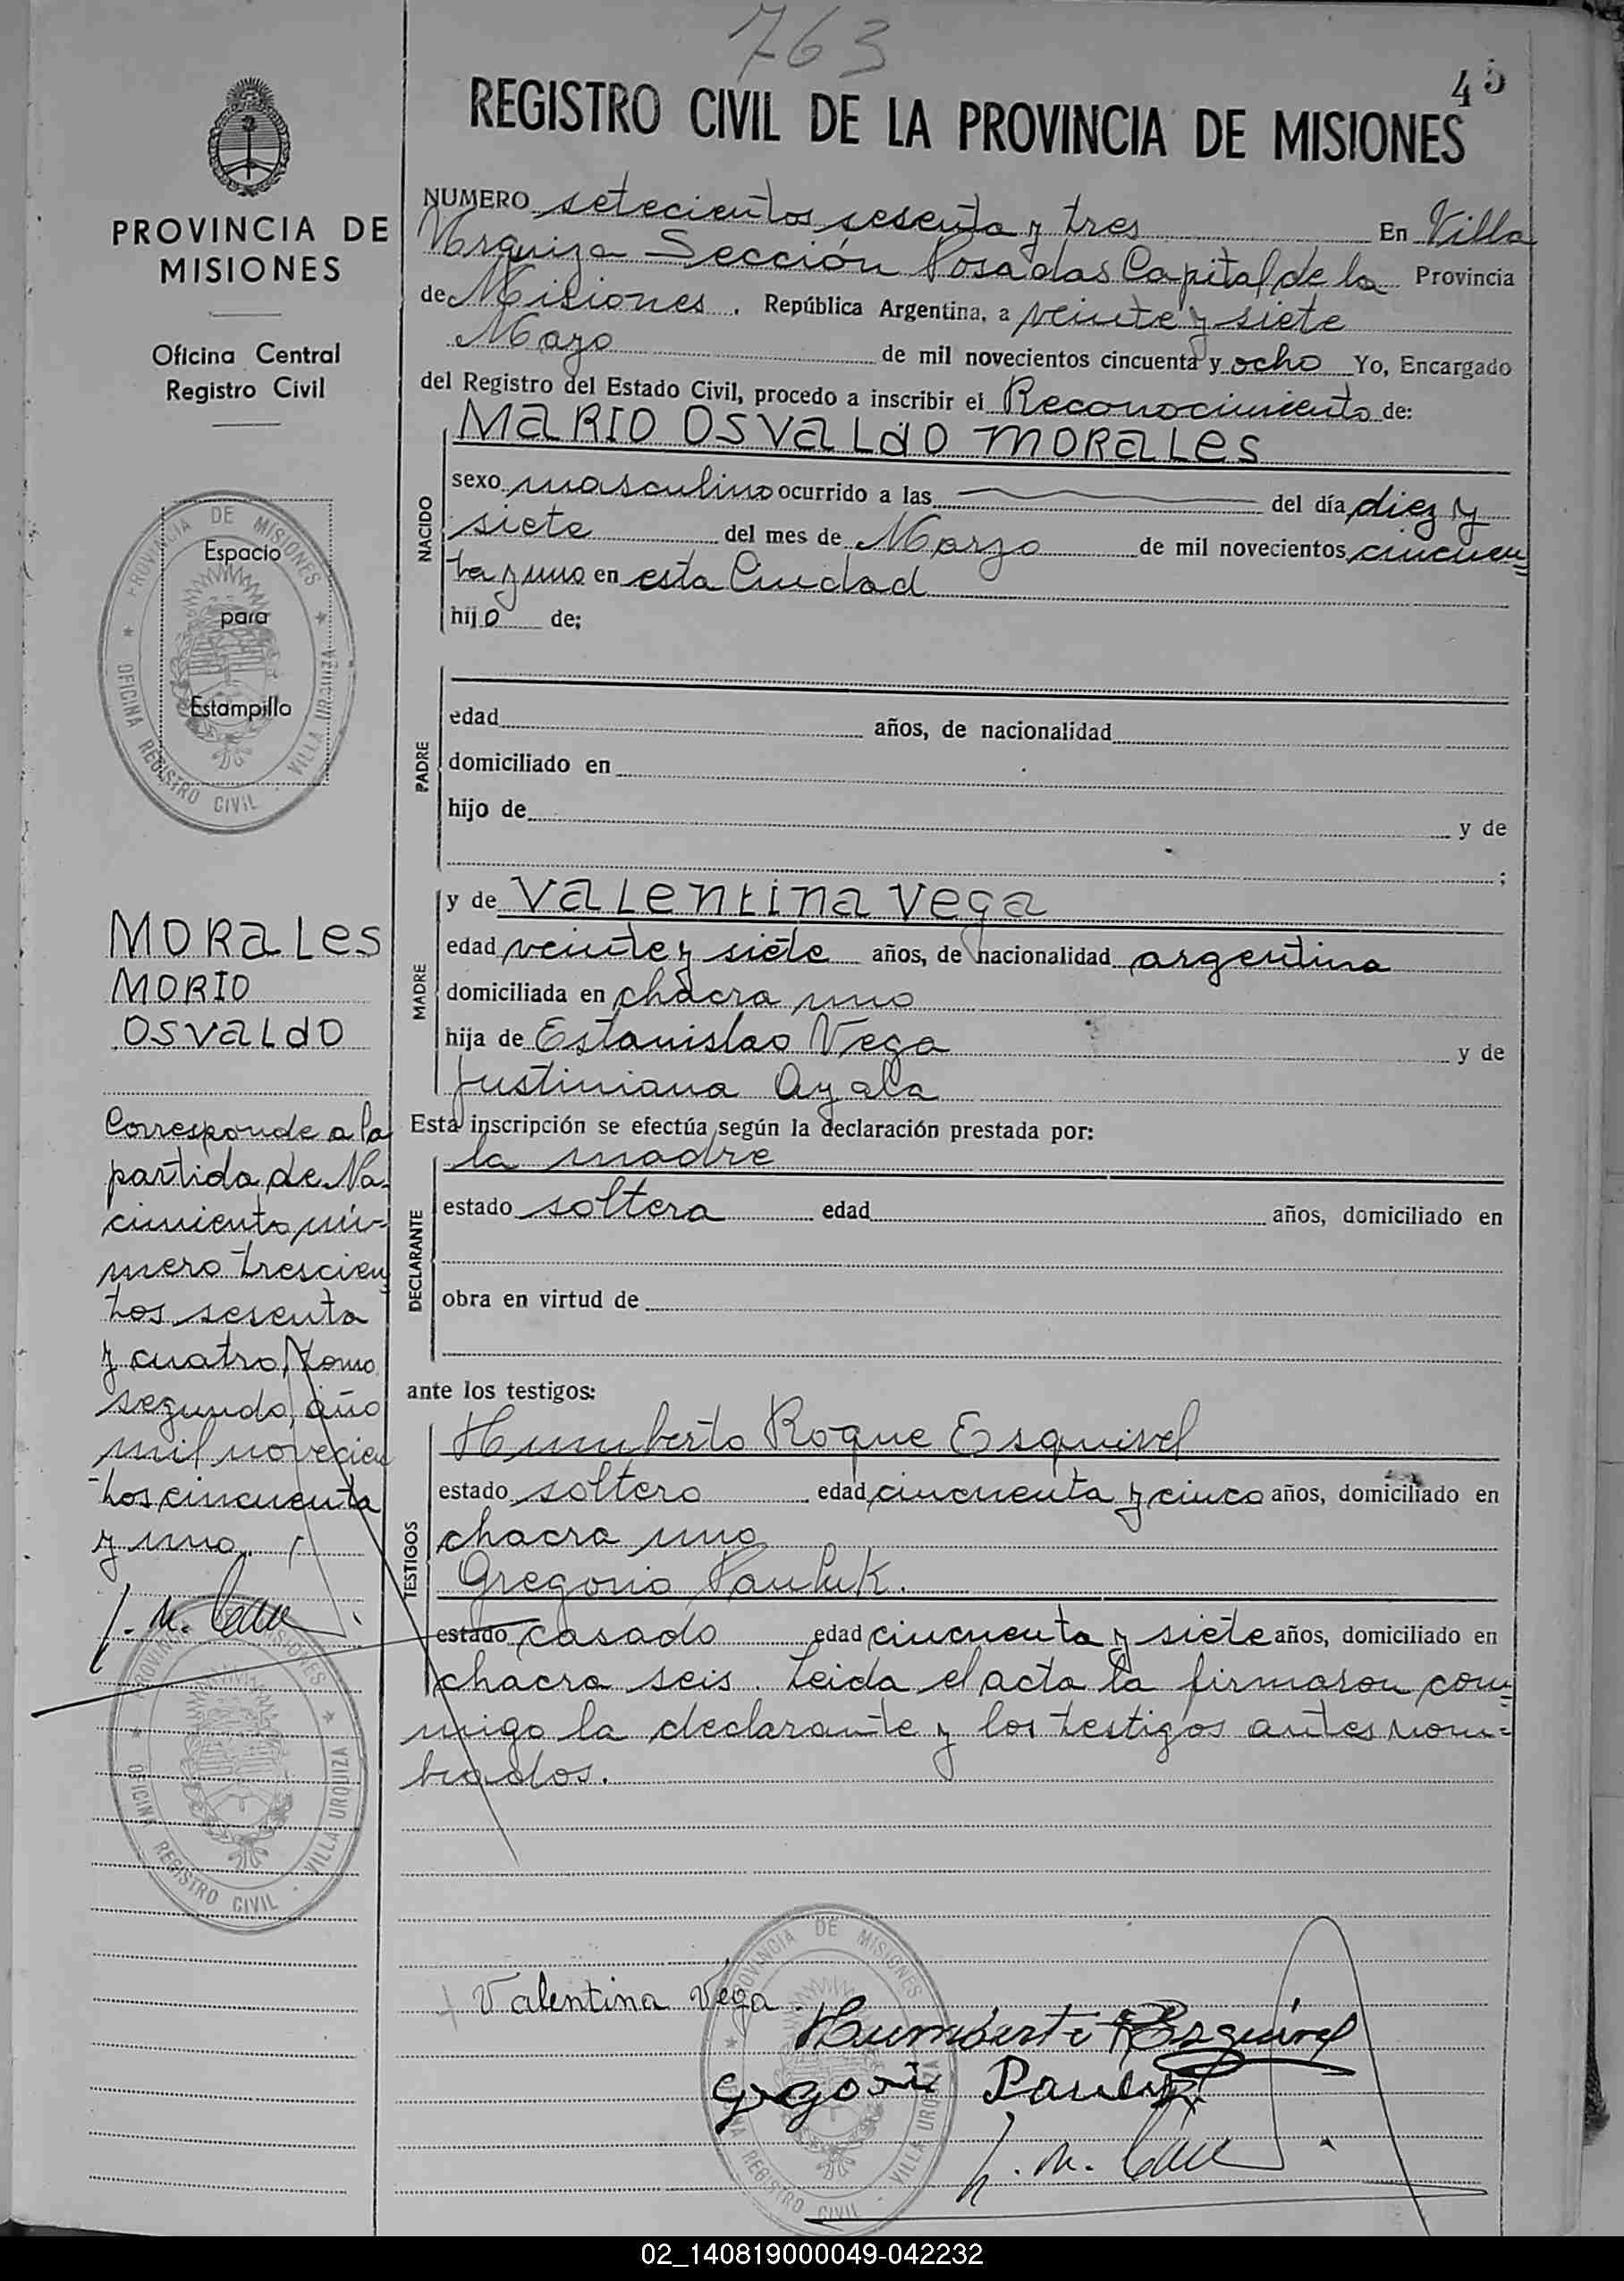 763
45
REGISTRO CIVIL DE LA PROVINCIA DE MISIONES
PROVINCIA DE
MISIONES
Oficina Central
Registro Civil
PROVINCIA DE MISIONES
OFICINA REGISTRO CIVIL - VILLA URQUIZA
Espacio
para
Estampilla
MORALES
MORIO
OSVALdO
Corresponde a la
partida de Na-
cimiento nú-
mero trescien
tos sesenta
y cuatro, tomo
segundo, año
mil novecien
tos cincuenta
y uno.
PROVINCIA DE MISIONES
OFICINA REGISTRO CIVIL - VILLA URQUIZA
NUMERO setecientos sesenta y tres En Villa
Urquiza Sección Posadas Capital de la Provincia
de Misiones. República Argentina, a veinte y siete
Mayo de mil novecientos cincuenta y ocho Yo, Encargado
del Registro del Estado Civil, procedo a inscribir el Reconocimiento de:
NACIDO
MARIO OSVALdO MORALES
sexo masculino ocurrido a las del día diez y
siete del mes de Marzo de mil novecientos cincuen=
ta y uno en esta Ciudad
hijo de;
PADRE
edad años, de nacionalidad
domiciliado en
hijo de y de
;
MADRE
y de VALENTINA VEGA
edad veinte y siete años, de nacionalidad argentina
domiciliada en chacra uno
hija de Estanislao Vega y de
Justiniana Ayala
Esta inscripción se efectúa según la declaración prestada por:
DECLARANTE
la madre
estado soltera edad años, domiciliado en
obra en virtud de
ante los testigos:
TESTIGOS
Humberto Roque Esquivel
estado soltero edad cincuenta y cinco años, domiciliado en
chacra uno
Gregorio Pauluk.
estado casado edad cincuenta y siete años, domiciliado en
chacra seis. Leida el acta la firmaron con=
migo la declarante y los testigos antes nom=
brados.
PROVINCIA DE MISIONES
OFICINA REGISTRO CIVIL - VILLA URQUIZA
Valentina Vega
Humberto R Esquivel
02_140819000049-042232